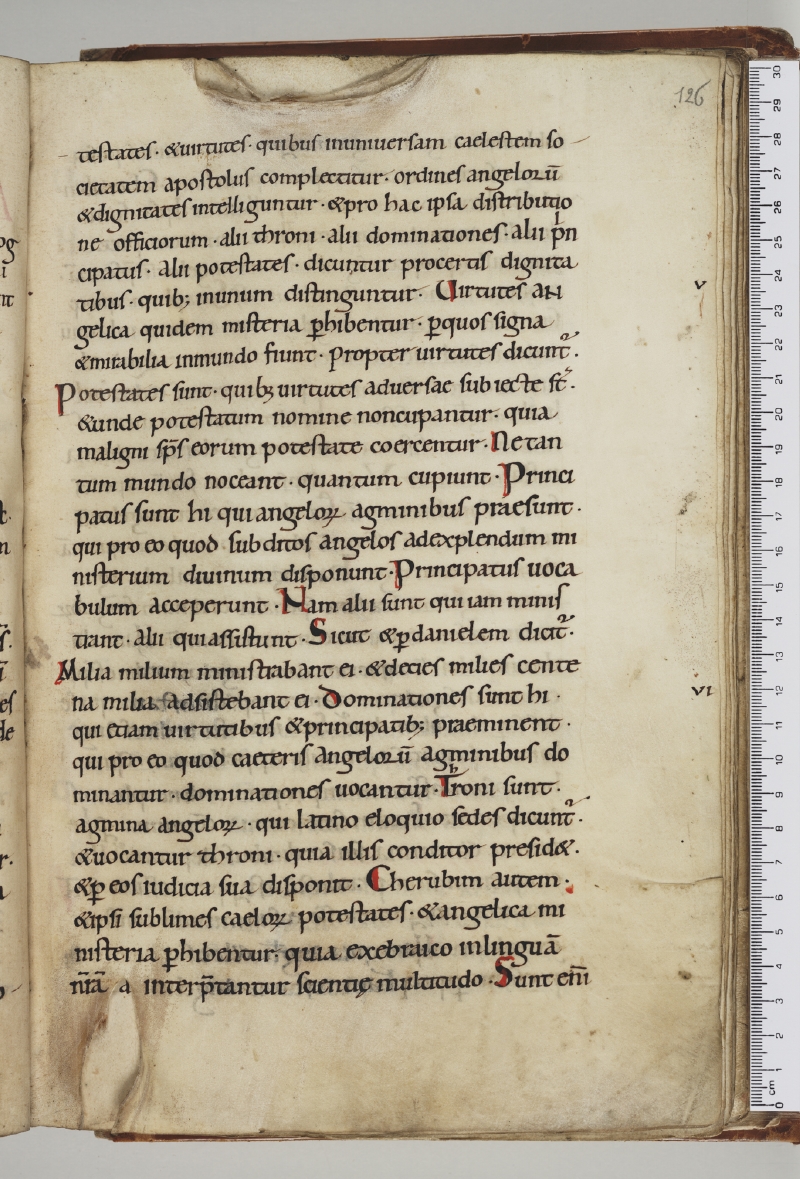 126
testates. &uirtutes. quibus inuniuersam caelestem so
cietatem apostolus complectitur. ordines angeloꝝ ū
&dignitates intelliguntur. &pro hac ipsa distributio
ne officiorum. alii throni. alii dominationes. alii p̍n
cipatus. alii potestates. dicuntur pro certis dignita
tibus. quib; inuicem distinguntur. Uirtutes an
v
gelica quidem misteria ꝑhibentur. ꝑquos signa
&mirabilia inmundo fiunt. Propter uirtutes dicunt᷑.
Potestates sunt. quib; uirtutes adversae subiecte st̄.
&unde potestatum nomine noncupantur. quia
maligni sp̄s eorum potestate coercentur. Ne tan
tum mundo noceant. quantum cupiunt. Princi
patus sunt hi qui angeloꝝ agminibus praesunt.
qui pro eo quod subditos angelos adexplendum mi
nisterium diuinum disponunt. Principatus uoca
bulum acceperunt. Nam alii sunt qui iam minis
trant. alii qui assistunt. Sicut &ꝑ danielem dicit᷑.
Milia milium ministrabant ei. &decies milies cente
na milia adsistebant ei. Dominationes sunt hi.
vi
qui etiam uirtutibus &principatib; praeminent.
qui pro eo quod caeteris angeloꝝ ū agminibus do
minantur. dominationes uocantur. Troni sunt.
agmina angeloꝝ. qui latino eloquio sedes dicunt᷑.
&uocantur throni. quia illis conditor presid&.
&ꝑ eos iudicia sua disponit. Cherubim autem.
&ipsi sublimes caeloꝝ potestates. &angelica mi
nisteria ꝑhibentur. quia exebraico inlinguā
nr̄ā a interp̄tantur scientię multitudo. Sunt eni̅